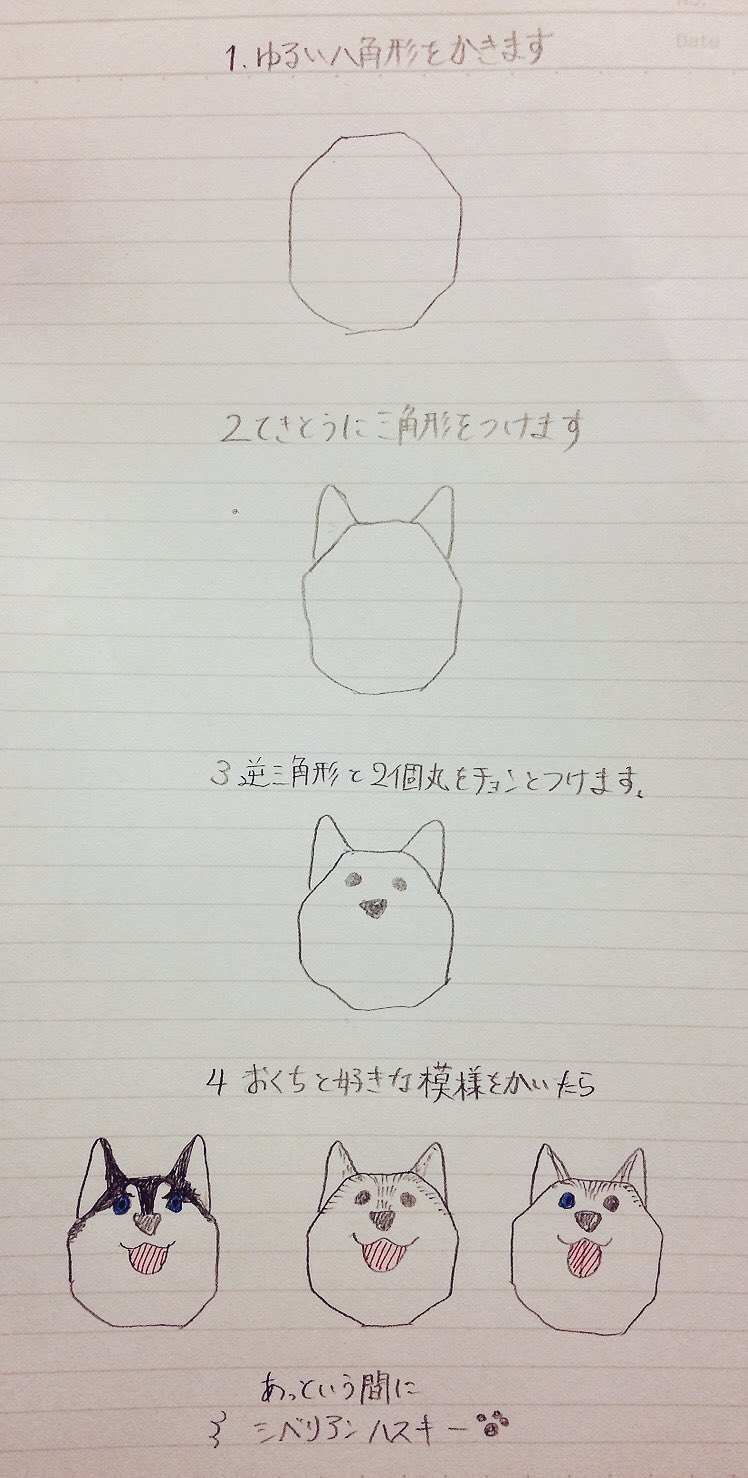 No.
Date
1.ゆるい八角形をかきます
2てきとうに三角形をつけます
3逆三角形と2個丸をチョンとつけます。
4 おくちと好きな模様をかいたら
あっという間に
シベリアンハスキー